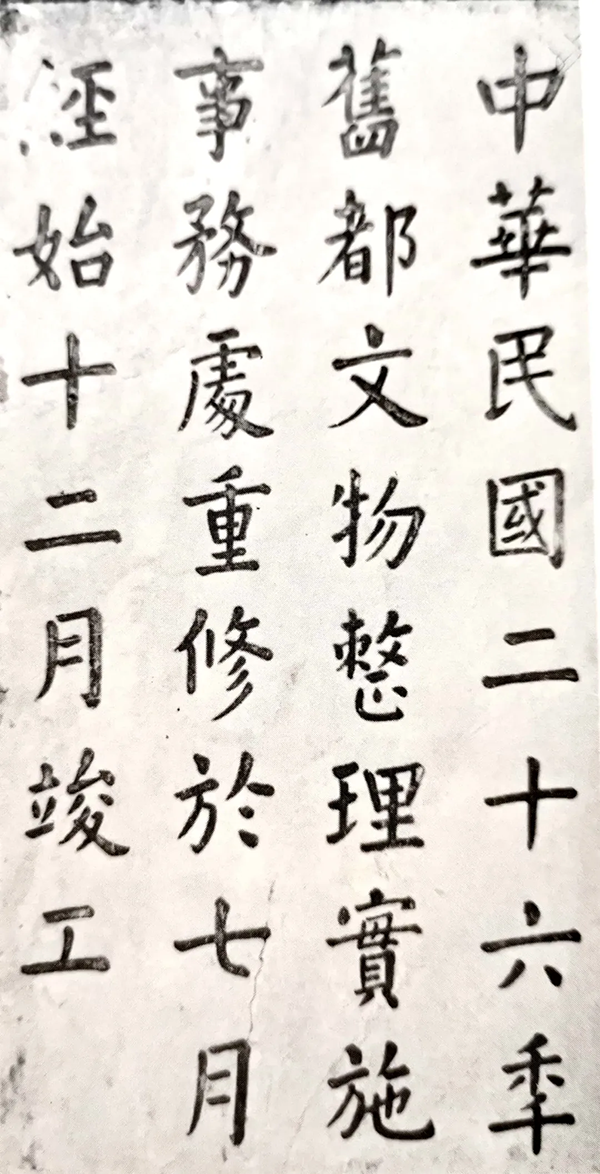 中華民國二十六秊
舊都文物整理實施
事務處重修於七月
經始十二月竣工